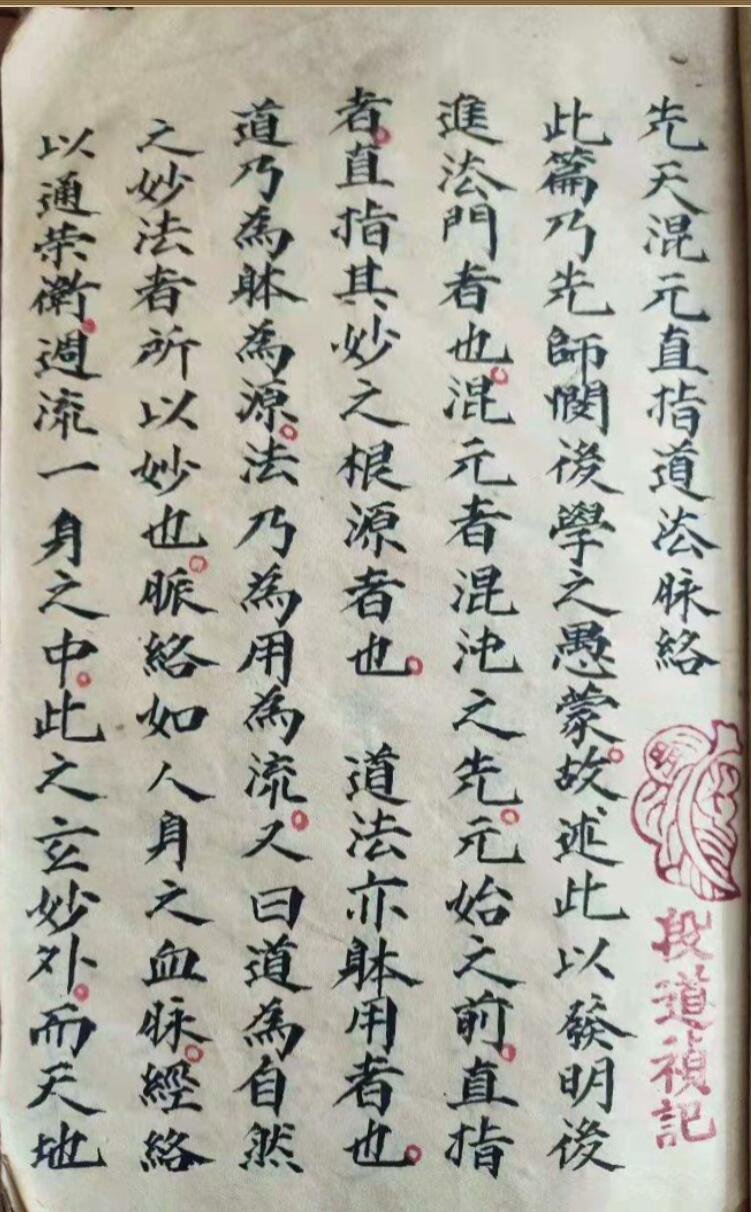 先天混元直指道法脉絡
此篇乃先師憫後學之愚蒙。故述此以發明後
進法門者也。混元者混沌之先。元始之前。直指
者。直指其妙之根源者也。 道法亦躰用者也。
道乃為躰為源。法乃為用為流。又曰道為自然
之妙法者所以妙也。脈絡如人身之血脉。經絡
以通荣衛。週流一身之中。此之玄妙外。而天地
段道禎記